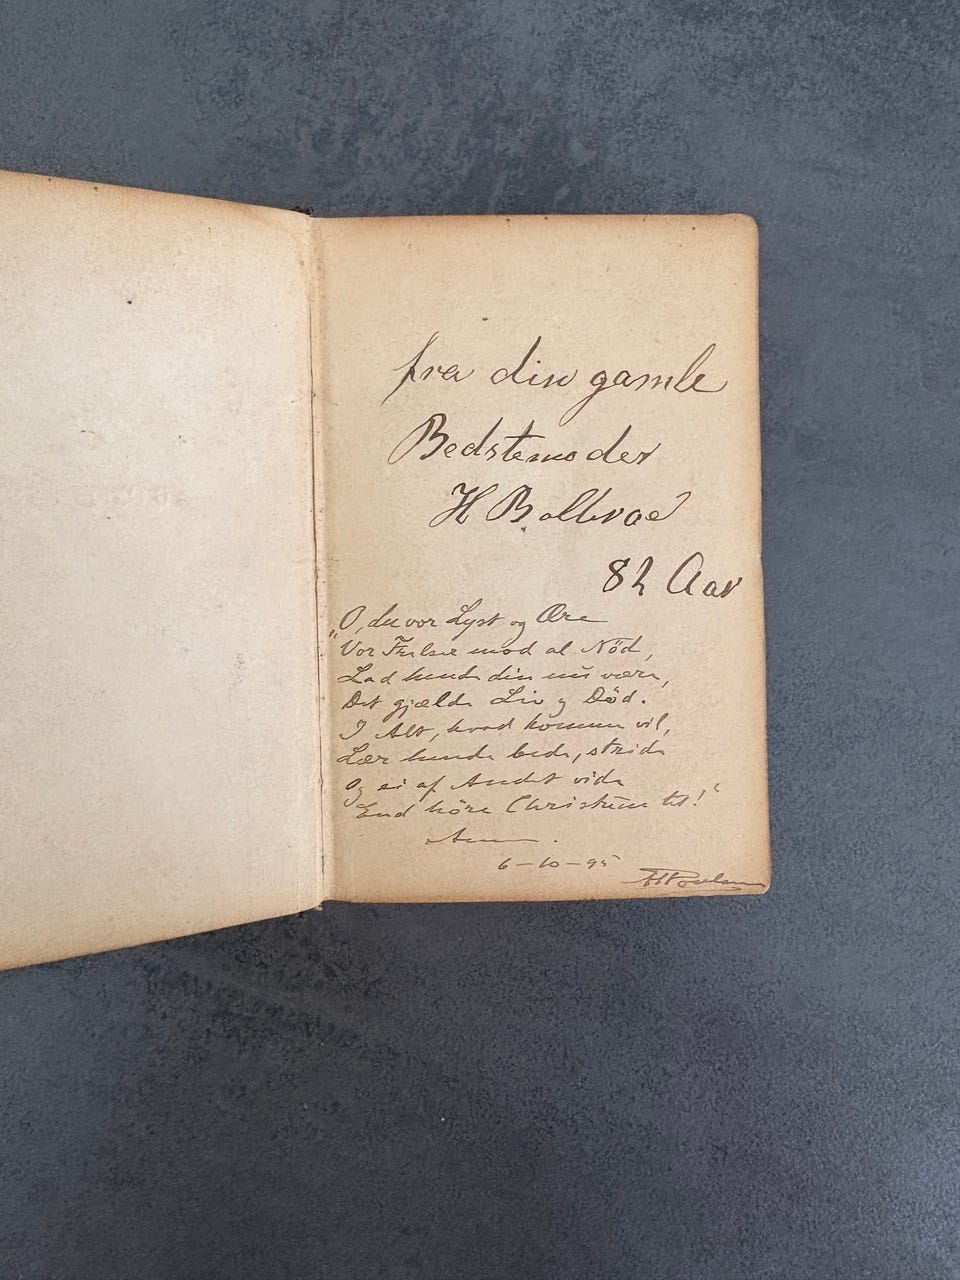 fra din gamle
Bedstemoder
H Bollvae
82 Aar
„O, du vor Lyst og Ære
Vor Frelser mod al Nöd,
Lad hende din nu være,
Det gjælder Liv og Död.
I Alt, hvad komme vil,
Lær hende bede, stride
Og ei af Andet vide
End höre Christum til!“
Amen.
6-10-95